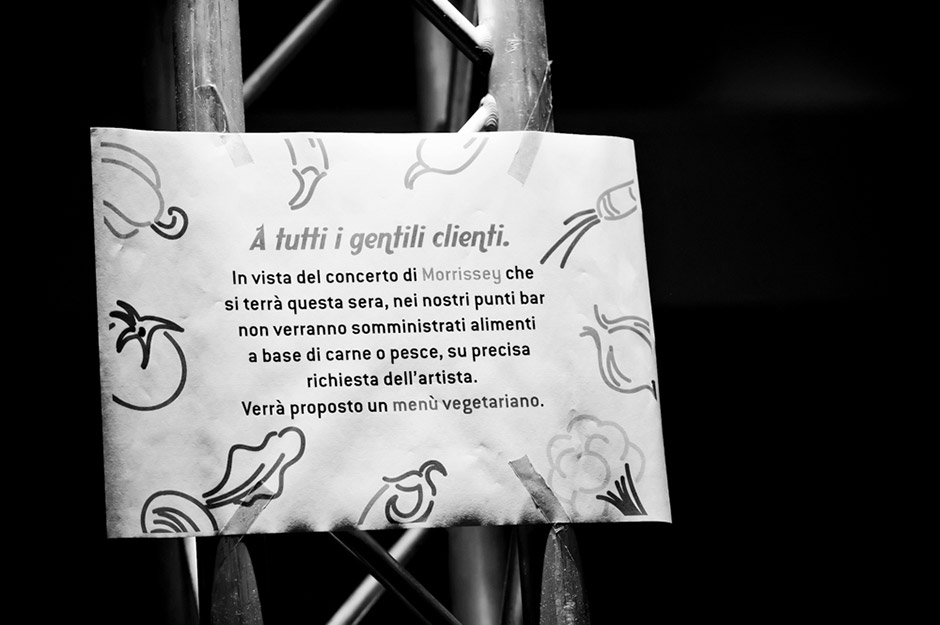 A tutti i gentili clienti.
In vista del concerto di Morrissey che
si terrà questa sera, nei nostri punti bar
non verranno somministrati alimenti
a base di carne o pesce, su precisa
richiesta dell'artista.
Verrà proposto un menù vegetariano.